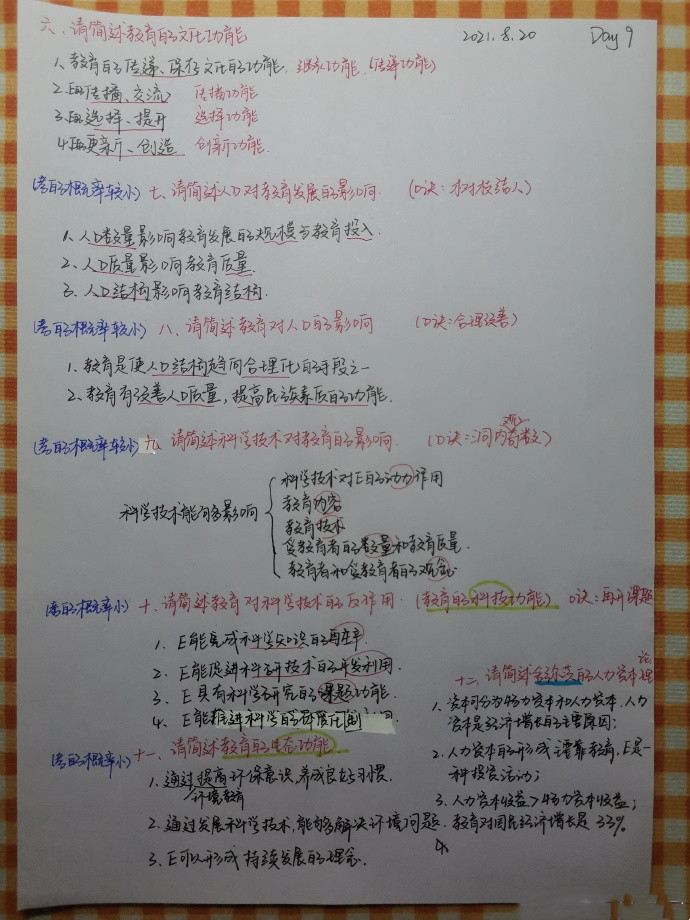 六、请简述教育的文化功能
2021.8.20 Day 9
1、教育的传递、保存文化的功能, 继承功能(传递功能)
2.E的传播、交流 传播功能
3.E的选择、提升 选择功能
4.E的更新、创造 创新功能.
(考的概率较小) 七、请简述人口对教育发展的影响. (口诀: 对校结人)
1、人口数量影响教育发展的规模与教育投入.
2、人口质量影响教育质量.
3、人口结构影响教育结构.
(考的概率较小) 八、请简述教育对人口的影响 (口诀:合理改善)
1、教育是使人口结构趋向合理化的手段之一
2、教育有改善人口质量,提高民族素质的功能.
(考的概率较小) 九、请简述科学技术对教育的影响. (口诀:动内技数观)
科学技术能够影响
科学技术对E的动力作用
教育内容
教育技术
受教育者的数量和教育质量.
教育者和受教育者的观念
(考的概率小) 十、请简述教育对科学技术的反作用. (教育的科技功能) 口诀:再开课题
1、E能完成科学知识的再生产.
2、E能促进科研技术的开发利用.
3、E具有科学研究的课题功能.
4、E能推进科学的体制化
(考的概率小) 十一、请简述教育的生态功能
1、通过提高环保意识,养成良好习惯.
环境教育
2、通过发展科学技术,能够解决环境问题.
3、E可以形成持续发展的理念.
十二、请简述舒尔茨的人力资本理论
1、资本可分为物力资本和人力资本,人力
资本是经济增长的主要原因;
2、人力资本的形成主要靠教育,E是一
种投资活动;
3、人力资本收益>物力资本收益;
4、教育对国民经济增长是33%.